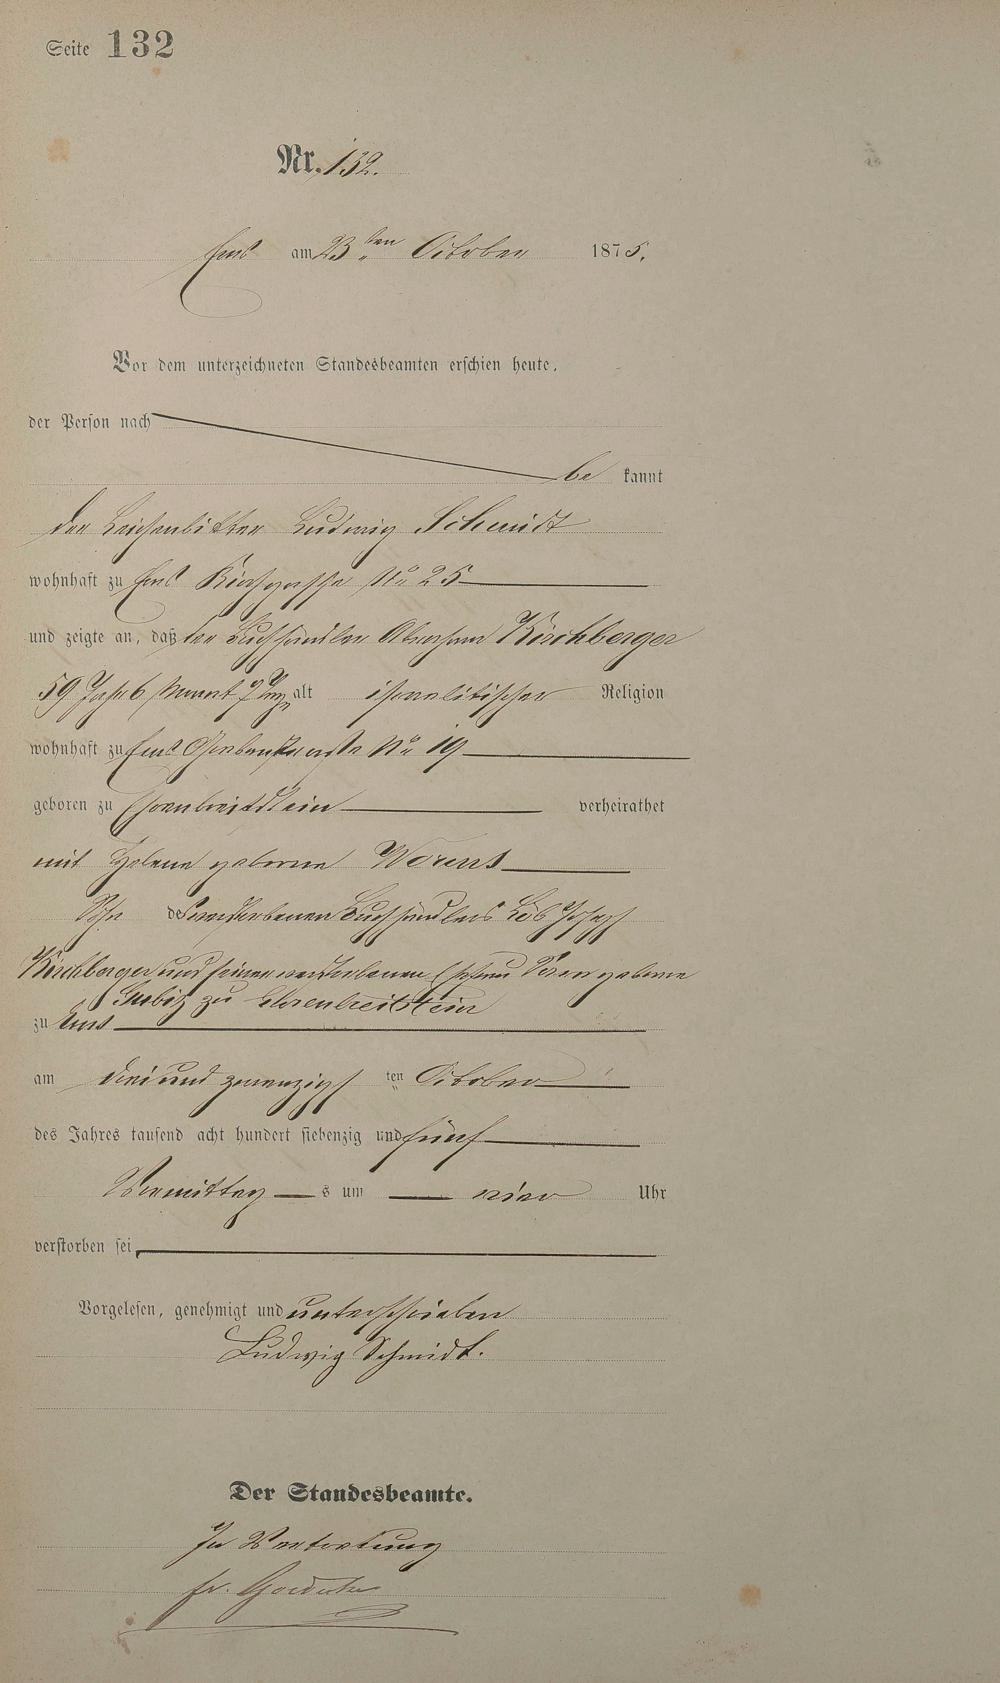 Seite 132
Nr. 132.
Ems am 23ten October 1875.
Vor dem unterzeichneten Standesbeamten erschien heute,
der Person nach
be kannt
der Leichenbitter Ludwig Schmidt
wohnhaft zu Ems Kirchgasse No 25
und zeigte an, daß der Buchhändler Abraham Kirchberger
59 Jahr 6 Monat 7 Tage alt israelitischer Religion
wohnhaft zu Ems Grabenstraße No 19
geboren zu Ehrenbreitstein verheirathet
mit Helene geborene Worms
Sohn des verstorbenen Buchhändlers Löb Joseph
Kirchberger und seiner verstorbenen Ehefrau geborne
zu Ehrenbreitstein
zu Ems
am drei und zwanzigs ten October
des Jahres tausend acht hundert siebenzig und fünf
Vormittag s um vier Uhr
verstorben sei
Vorgelesen, genehmigt und unterschrieben
Ludwig Schmidt.
Der Standesbeamte.
In Vertretung
fr.